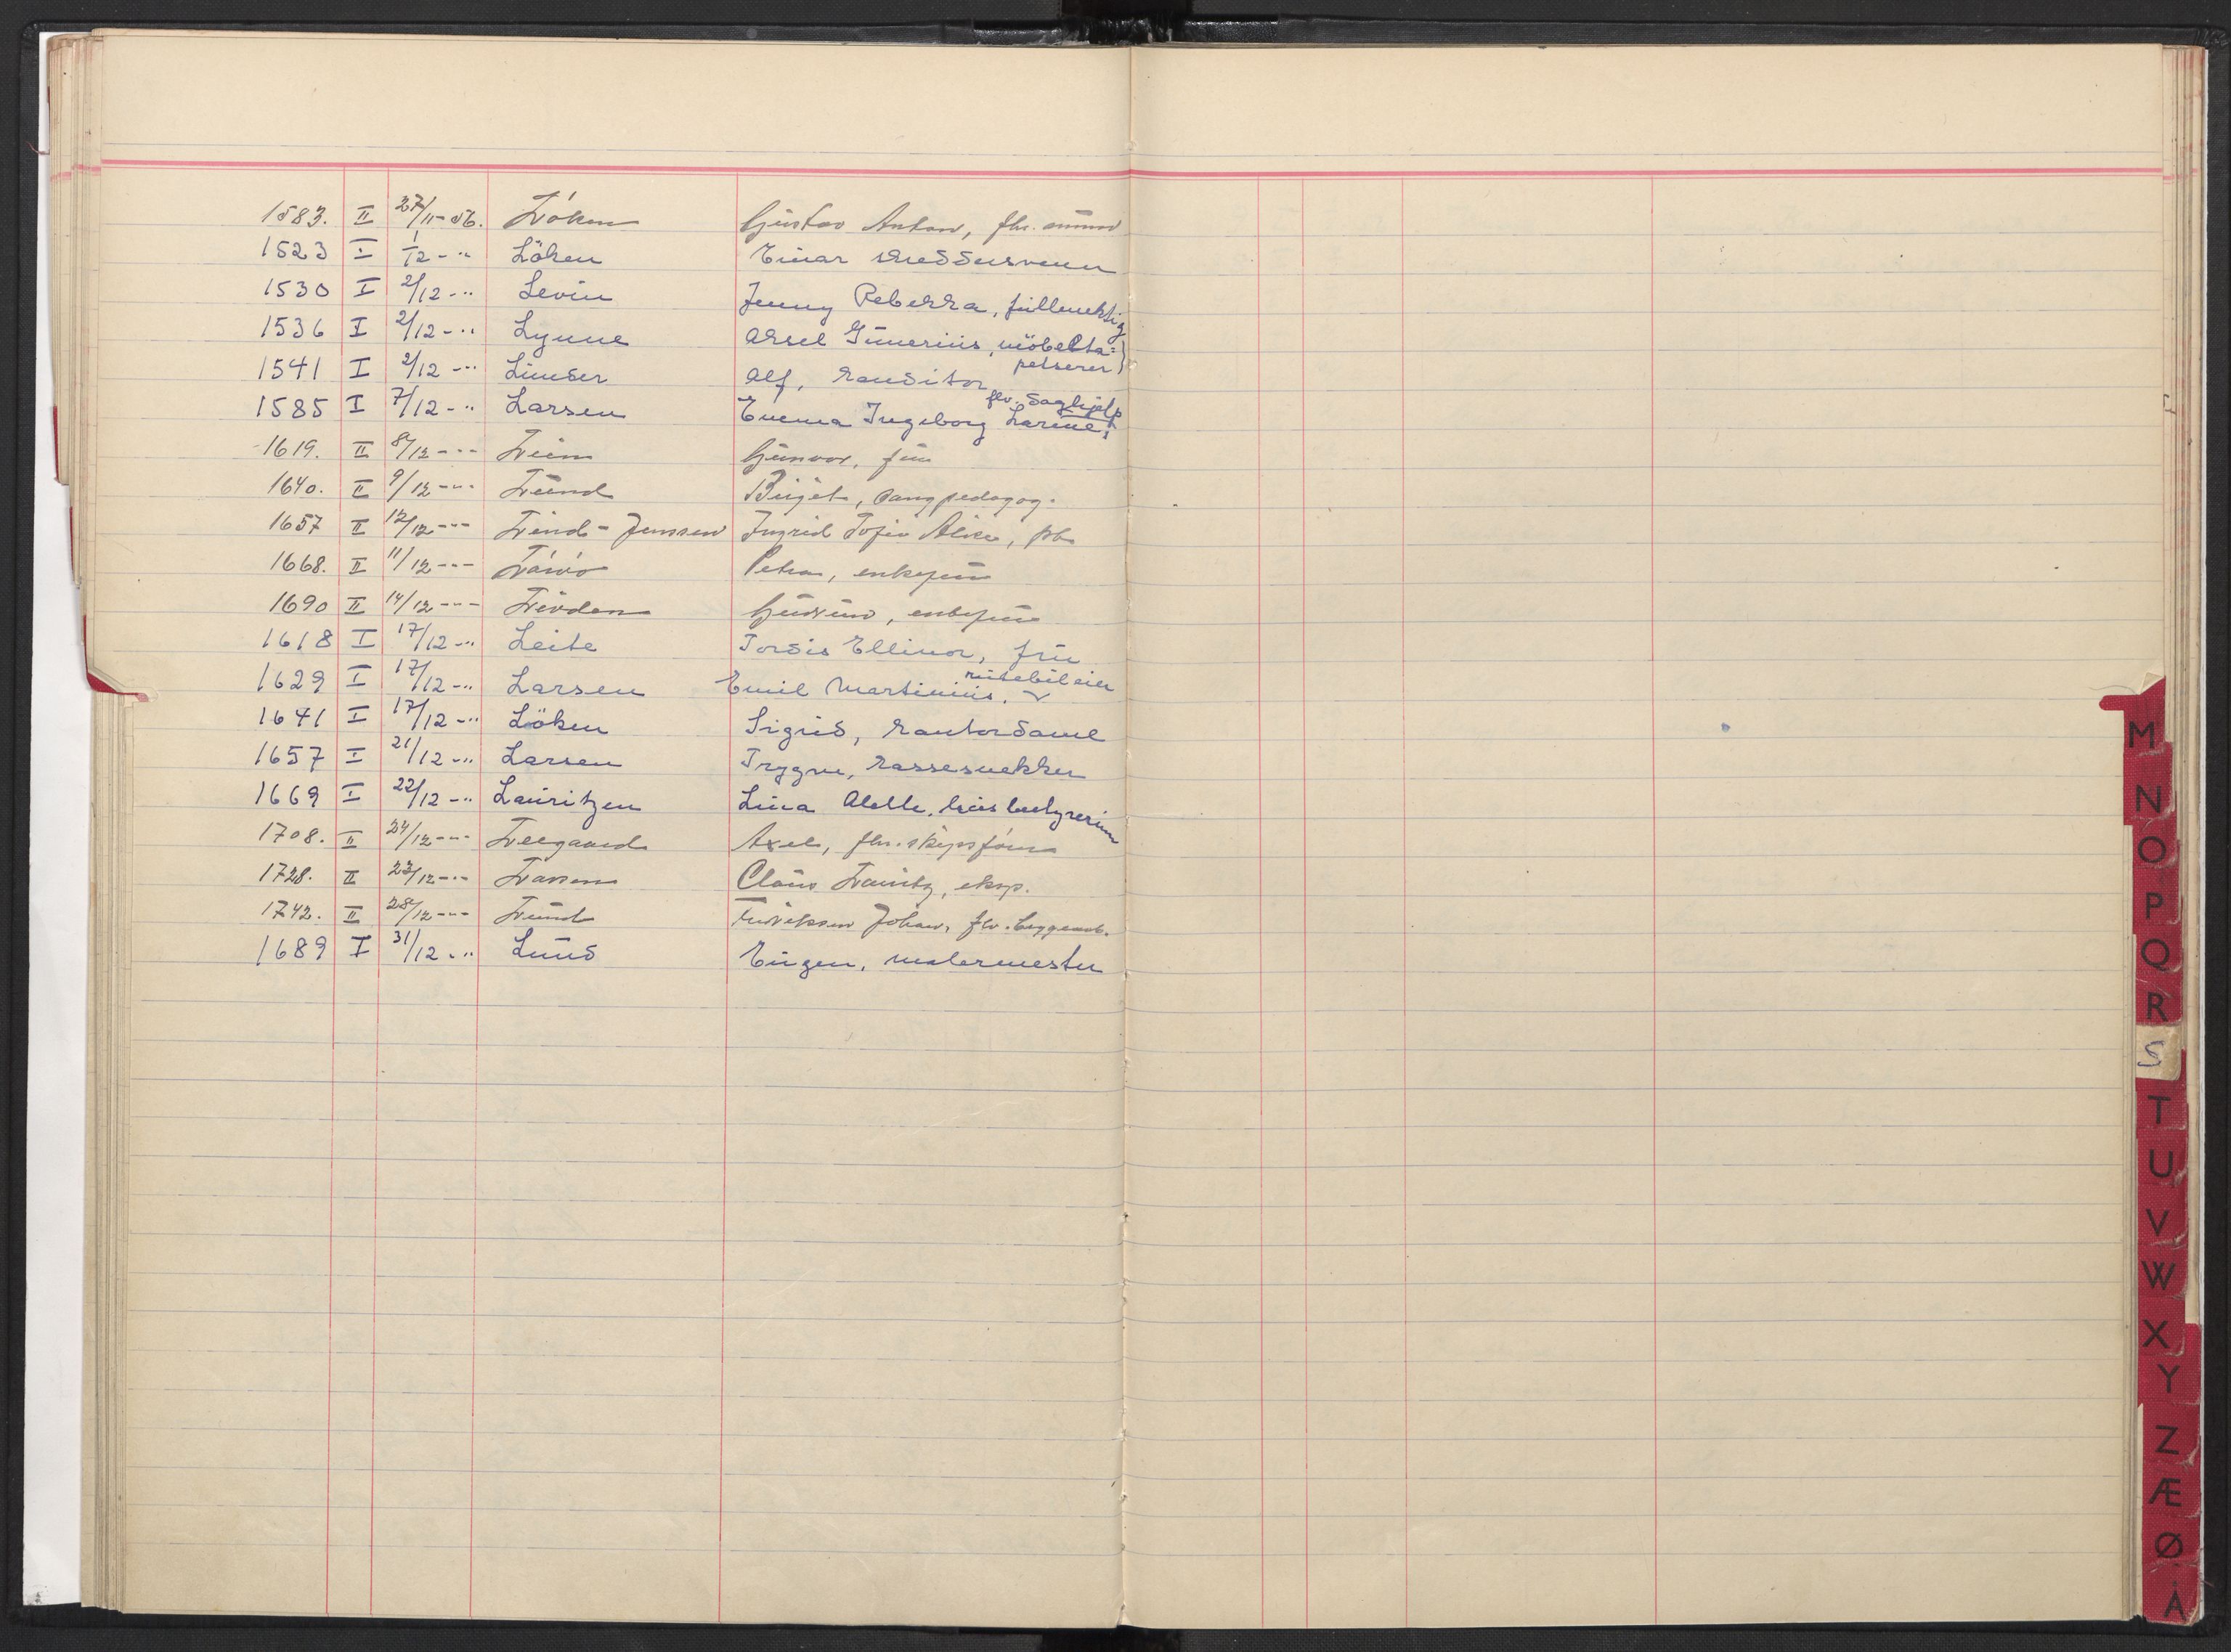 1583. II 27/11-56. Løken Gustav Anton, fhv.
1523 I 1/12 - " Löken Einar skreddersvenn
1530 I 2/12 - " Levin Jenny Rebekka, fullmektig
1536 I 2/12 - " Lynne Aksel Gunerius, möbelta=
petserer)
1541 I 2/12 - " Linder Alf, konditor
flv. daghjelp
1585 I 7/12 - " Larsen Emma Ingeborg Larine,
1619. II 8/12 - " - Leim Gunvor, fru
1640. II 9/12 - " - Lund Birgit, sangpedagog.
1657 II 12/12 - " - Lind-Jenssen Ingrid Sofie Alice,
1668. II 11/12 - " - Petra, enkefru
1690 II 14/12 - " - Gudrun, enkefru
1618 I 17/12 - " Leite Tordis Ellinor, fru
rutebileier
1629 I 17/12 - " Larsen Emil Martinius.
1641 I 17/12 - " Löken Sigrid, kontordame
1657 I 21/12 - " Larsen Trygve, kassesnekker
1669 I 22/12 - " Lauritzen Lina Alette, husbestyrerinne
1708. II 24/12 - " - Leegaard Axel, fhv. skipsfører
1728. II 23/12 - " - Larsen Claus Lauritz, eksp.
1742. II 28/12 - " - Lund Fredriksen Johan, flv. byggearb.
1689 I 31/12 - " Lund Eugen, malermester
M
N
O
P
Q
R
S
T
U
V
W
X
Y
Z
Æ
Ø
Å